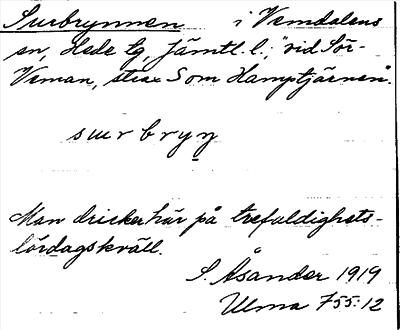 Surbrynnen i Vemdalens
sn, Hede tg, Jämtl. l.; "vid Sör-
Veman, strax S om Hamptjärnen".
surbryn̠
Man dricker här på trefaldighets-
lördagskväll.
S. Åsander 1919
Ulma 755:12